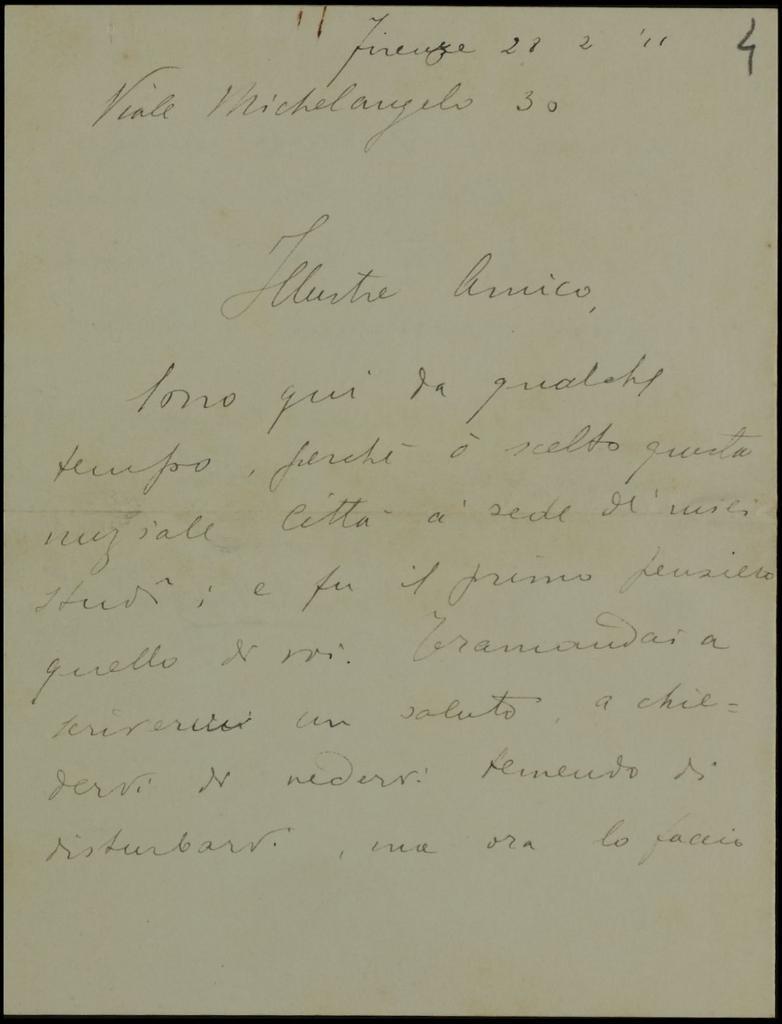 Firenze 28 2 '11
4
Viale Michelangelo 30
Illustre Amico,
Sono qui da qualche
tempo, perchè ò scelto questa
città a sede de' miei
studî; e fu il primo pensiero
quello di voi. Tramandai a
scrivervi un saluto, a chie=
dervi di vedervi temendo di
disturbarvi, ma ora lo faccio